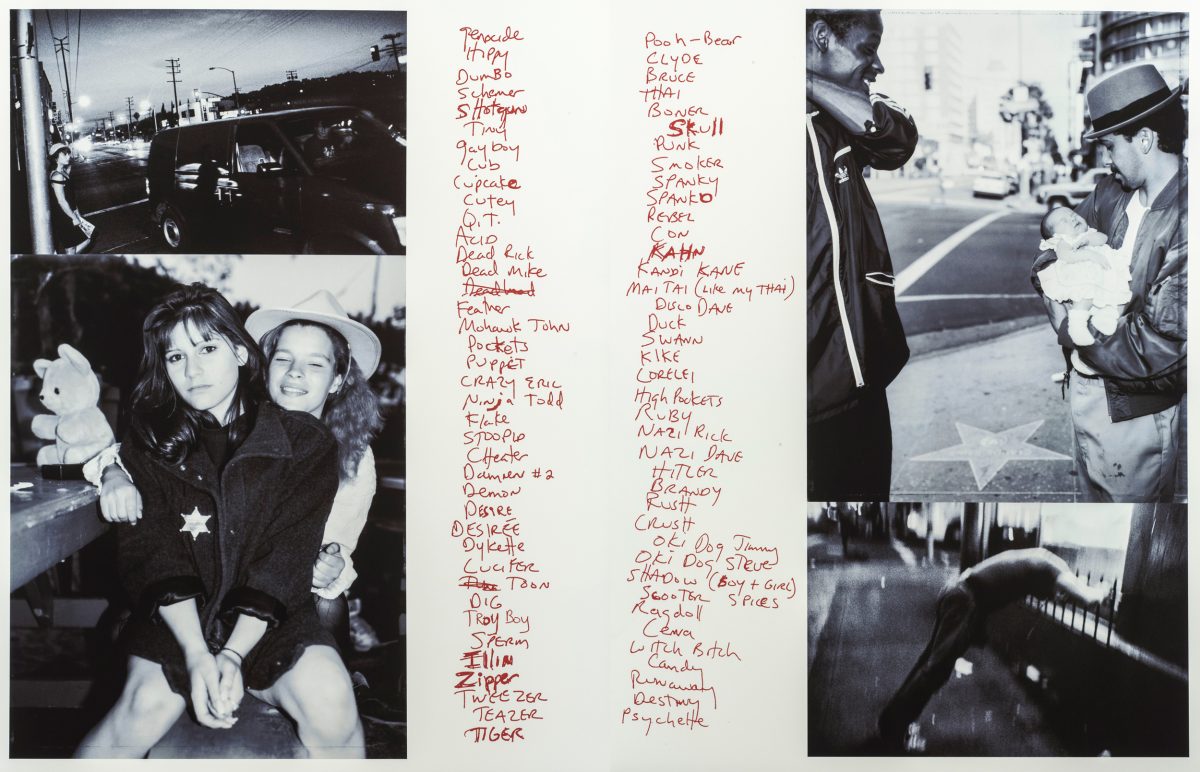 Genocide
Hippy
DUMBO
Schemer
Shotgun
Tiny
gayboy
Cub
Cupcake
Cutey
Q.T.
ACID
Dead Rick
Dead Mike
Feather
Mohawk John
Pockets
PUPPET
CRAZY ERIC
Ninja Todd
Flake
STOOPID
CHeater
Damien #2
Demon
DESIRE
DESIRÉE
Dykette
LUCIFER
TOON
DIG
TROY BOY
SPERM
ILLIN
Zipper
TWEEZER
TEAZER
TIGER
Pooh-Bear
CLYDE
BRUCE
THAI
BONER
SKull
PUNK
SMOKER
SPANKY
SPANKO
REBEL
CON
KAHN
KANDI KANE
MAI TAI (LIKE MY THAI)
DISCO DAVE
Duck
SWANN
KIKE
LORELEI
High POCKETS
RUBY
NAZI RICK
NAZI DAVE
HITLER
BRANDY
RUSH
CRUSH
OKI DOG Jimmy
OKI DOG STEVE
SHADOW (BOY + GIRL)
SCOOTER SPICES
Ragdoll
Cema
WITCH BITCH
Candy
Runaway
Destiny
Psychette